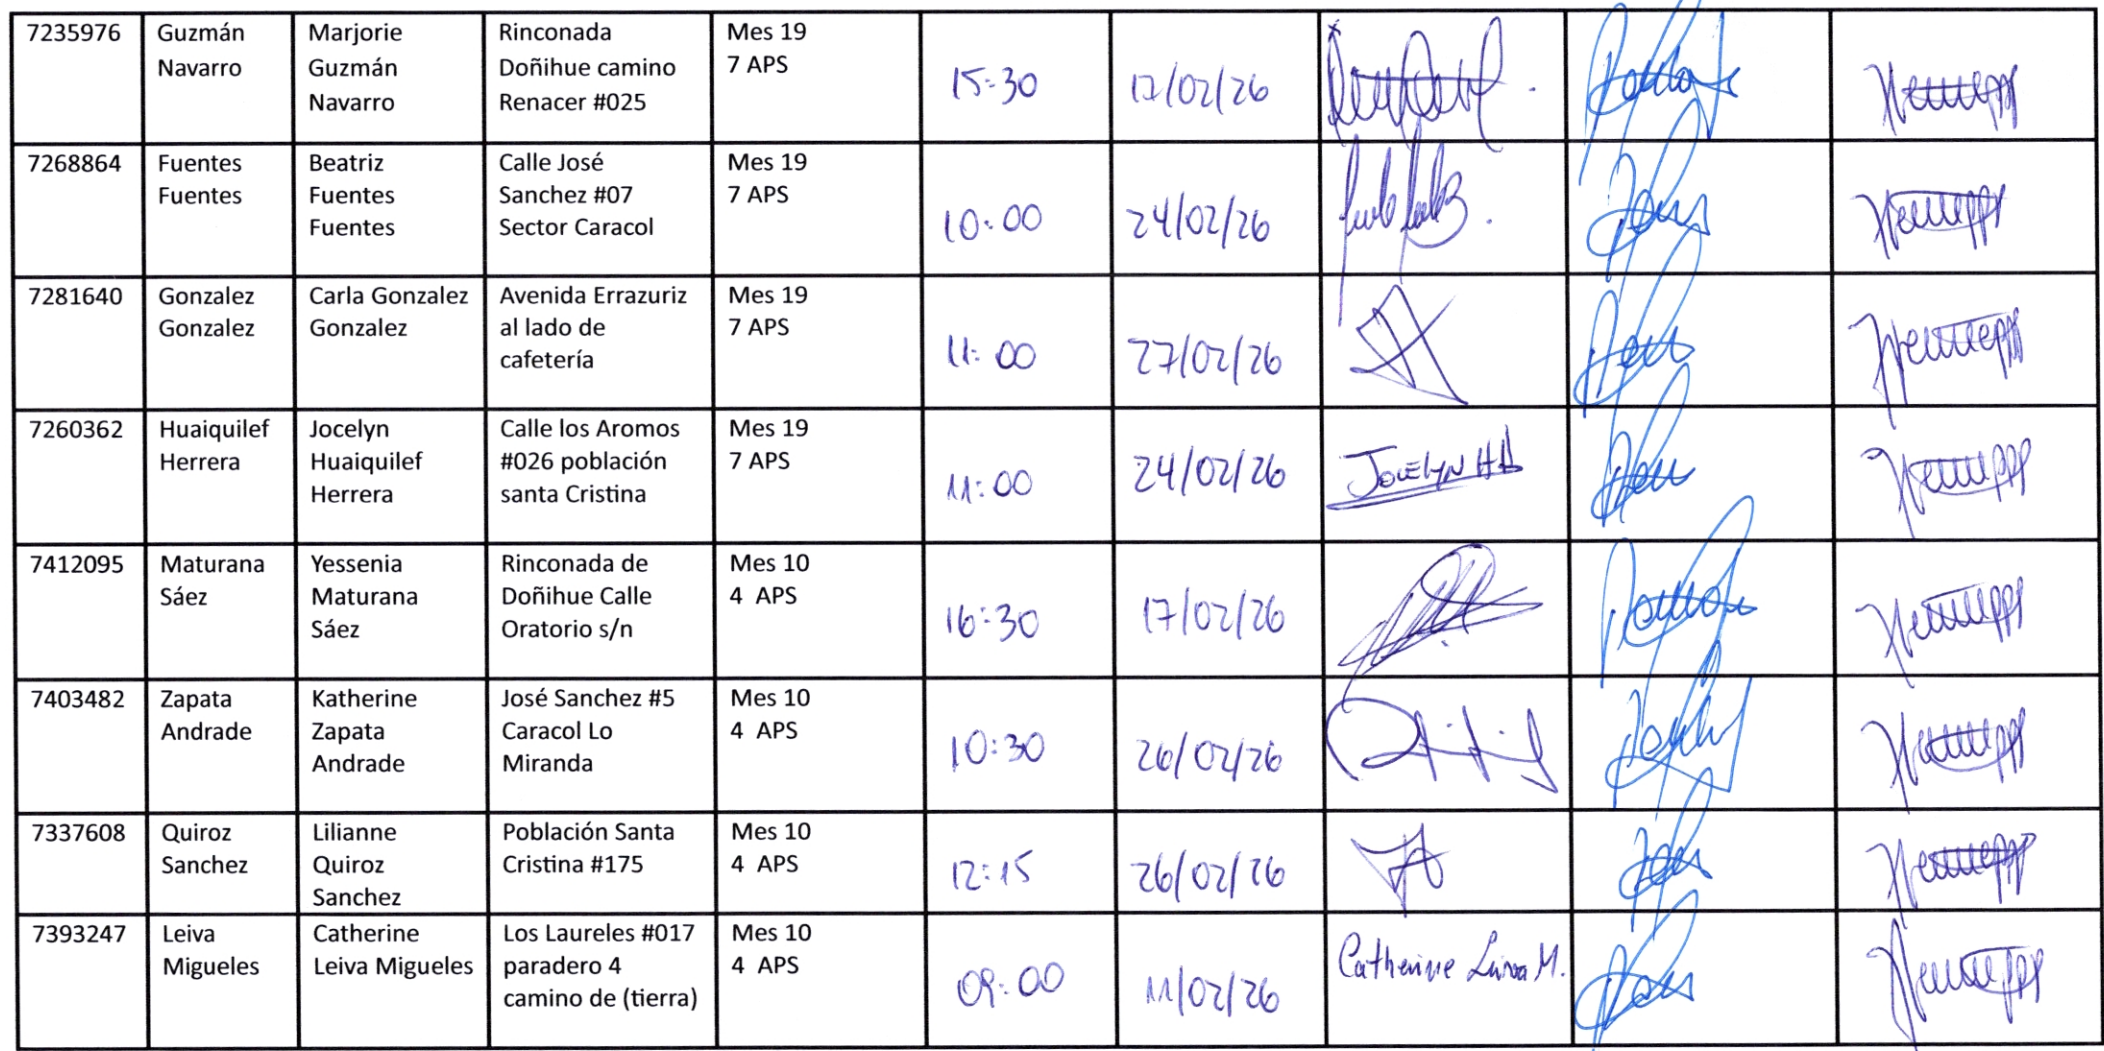 7235976 Guzmán Navarro Marjorie Guzmán Navarro Rinconada Doñihue camino Renacer #025 Mes 19 7 APS 15:30 17/02/26
7268864 Fuentes Fuentes Beatriz Fuentes Fuentes Calle José Sanchez #07 Sector Caracol Mes 19 7 APS 10:00 24/02/26
7281640 Gonzalez Gonzalez Carla Gonzalez Gonzalez Avenida Errazuriz al lado de cafetería Mes 19 7 APS 11:00 27/02/26
7260362 Huaiquilef Herrera Jocelyn Huaiquilef Herrera Calle los Aromos #026 población santa Cristina Mes 19 7 APS 11:00 24/02/26 Jocelyn HH
7412095 Maturana Sáez Yessenia Maturana Sáez Rinconada de Doñihue Calle Oratorio s/n Mes 10 4 APS 16:30 17/02/26
7403482 Zapata Andrade Katherine Zapata Andrade José Sanchez #5 Caracol Lo Miranda Mes 10 4 APS 10:30 26/02/26
7337608 Quiroz Sanchez Lilianne Quiroz Sanchez Población Santa Cristina #175 Mes 10 4 APS 12:15 26/02/26
7393247 Leiva Migueles Catherine Leiva Migueles Los Laureles #017 paradero 4 camino de (tierra) Mes 10 4 APS 09:00 11/02/26 Catherine Leiva M.